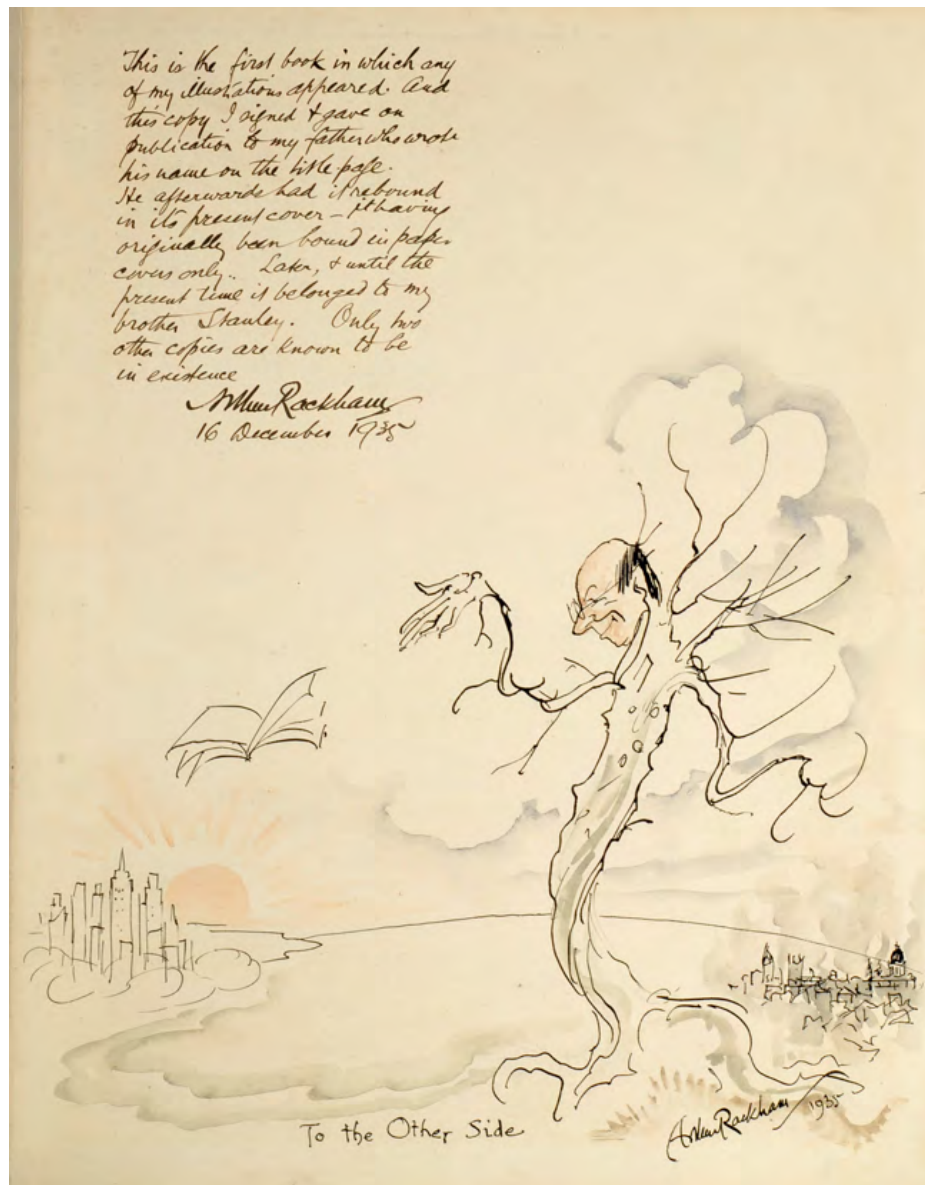 This is the first book in which any
of my illustrations appeared. And
this copy I signed & gave on
publication to my father who wrote
his name on the title-page.
He afterwards had it rebound
in its present cover – it having
originally been bound in paper
covers only.. Later, & until the
present time it belonged to my
brother Stanley. Only two
other copies are known to be
in existence
Arthur Rackham
16 December 1935
To the Other Side
Arthur Rackham 1935